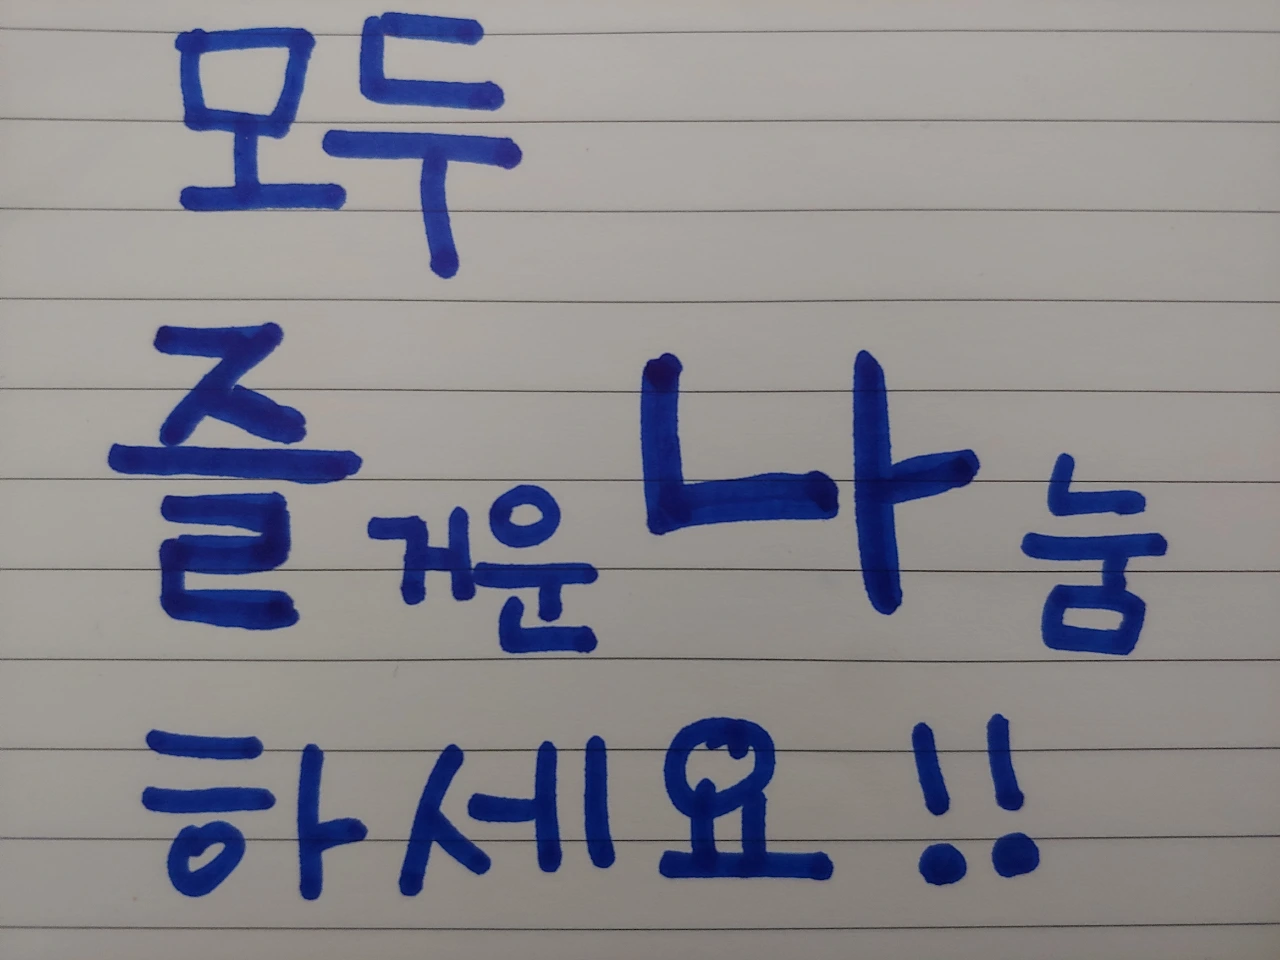 모두
즐거운 나눔
하세요!!